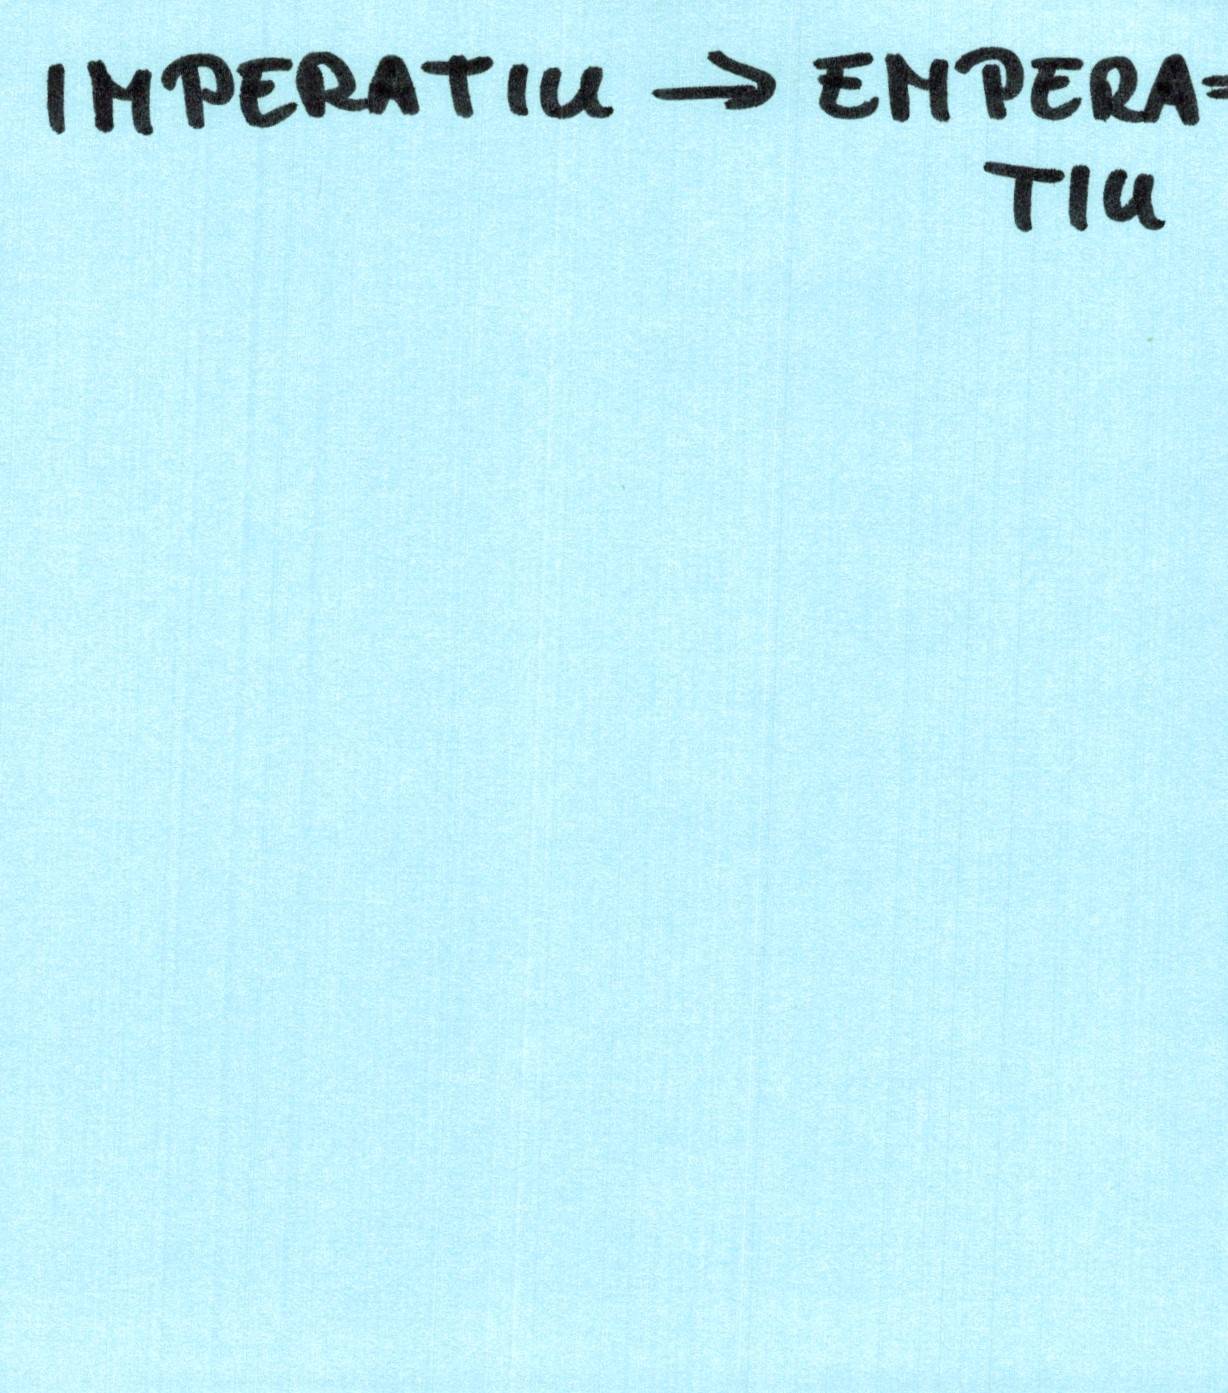 IMPERATIU → EMPERA=
TIU